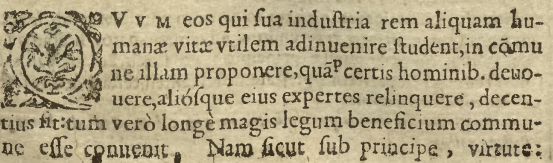 CVVM eos qui sua industria rem aliquam hu-
manæ vitæ vtilem adinuenire student, in cõmu
ne illam proponere, quãᵖ certis hominib. deuo-
uere, aliósque eius expertes relinquere, decen-
tius sit: tum verò longè magis legum beneficium commu-
ne esse conuenit. Nam sicut sub principe, virtute: